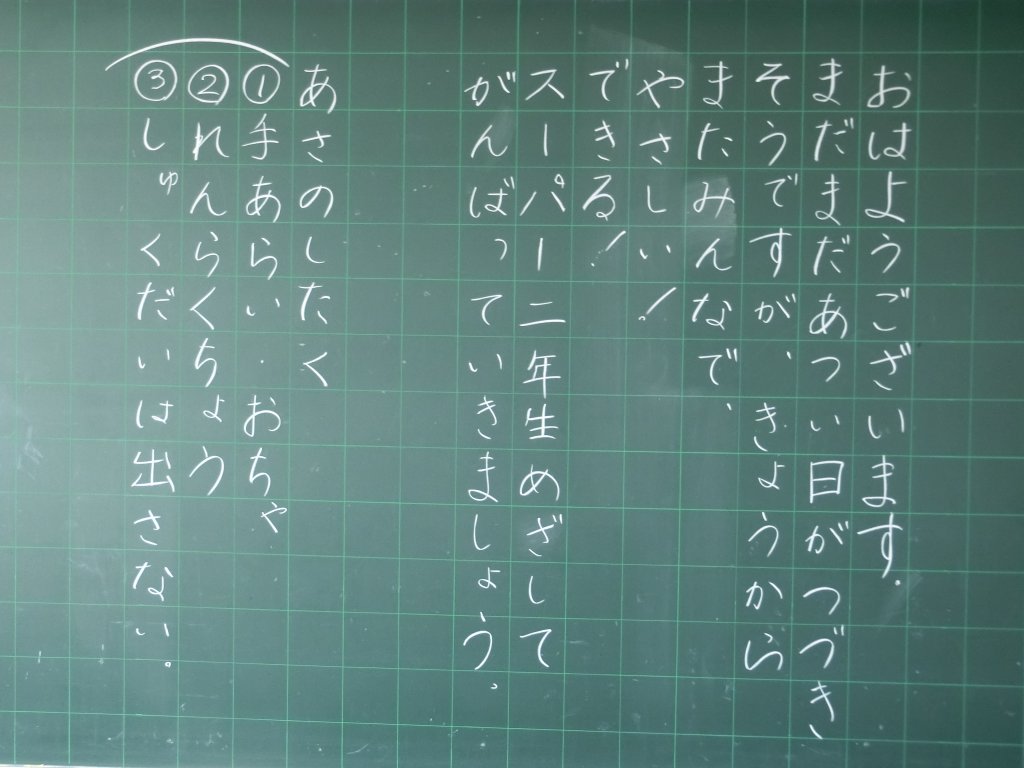 おはようございます。
まだまだあつい日がつづき
そうですが、きょうから
またみんなで、
やさしい!
できる!
スーパー二年生めざして
がんばっていきましょう。
あさのしたく
①手あらい・おちゃ
②れんらくちょう
③しゅくだいは出さない。